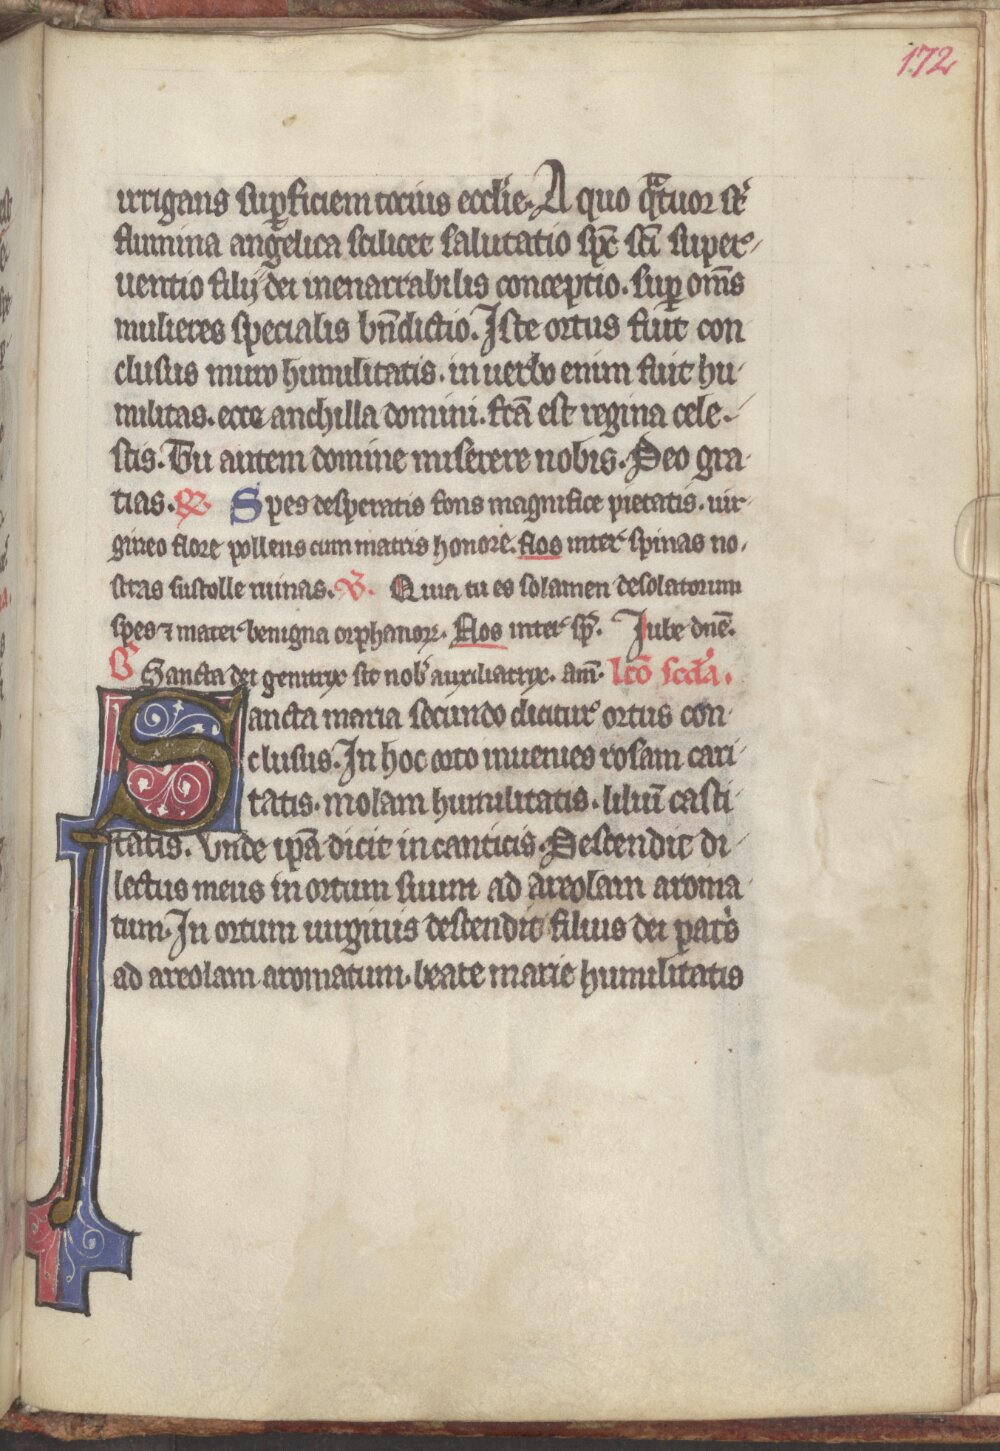 172
urrigans sup̲ficiem tocius eccl'ie. A quo qͣtuor st'
flumina angelica scilicet salutatio sp̄c sc̄i super-
uentio filij dei inenarrabilis conceptio. sup̲ om̄s
mulieres specialis bn̄dictio. Iste ortus fuit con
clusus muro humilitatis. in uerbo enim fuit hu-
militas. ecce anchilla domini. fc̄a est regina cele-
stis. Tu autem domine miserere nobis. Deo gra-
tias. R. Spes desperatis fons magnifice pietatis. uir-
gineo flore pollens cum matris honore. flos inter spinas no-
stras sustolle ruinas. V. Quia tu es solamen desolatorum
spes ⁊ mater benigna orphanoꝝ. flos inter sp̄. Jube dn̄e.
B Sancta dei genitrix sit nob' auxiliatrix. am̄. lc̄o scd'a.
Sancta maria secundo dicitur ortus con-
clusus. In hoc orto inuenies rosam cari-
tatis. uiolam humilitatis. liliū casti-
tatis. Vnde ip̄a dicit in canticis. Descendit di-
lectus meus in ortum suum ad areolam aroma-
tum. In ortum uirginis descendit filius dei pat's
ad areolam aromatum. beate marie humilitatis